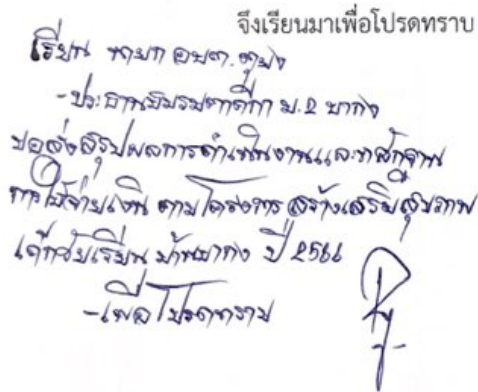 จึงเรียนมาเพื่อโปรดทราบ
เรียน นายก อบต.
-ประธานชมรมตาดีกา ม.2 บากง
ขอส่งสรุปผลการดำเนินงานและหลักฐาน
การใช้จ่ายเงิน ตามโครงการ สร้างเสริมสุขภาพ
เด็กวัยเรียน บ้านบากง ปี 2566
-เพื่อโปรดทราบ